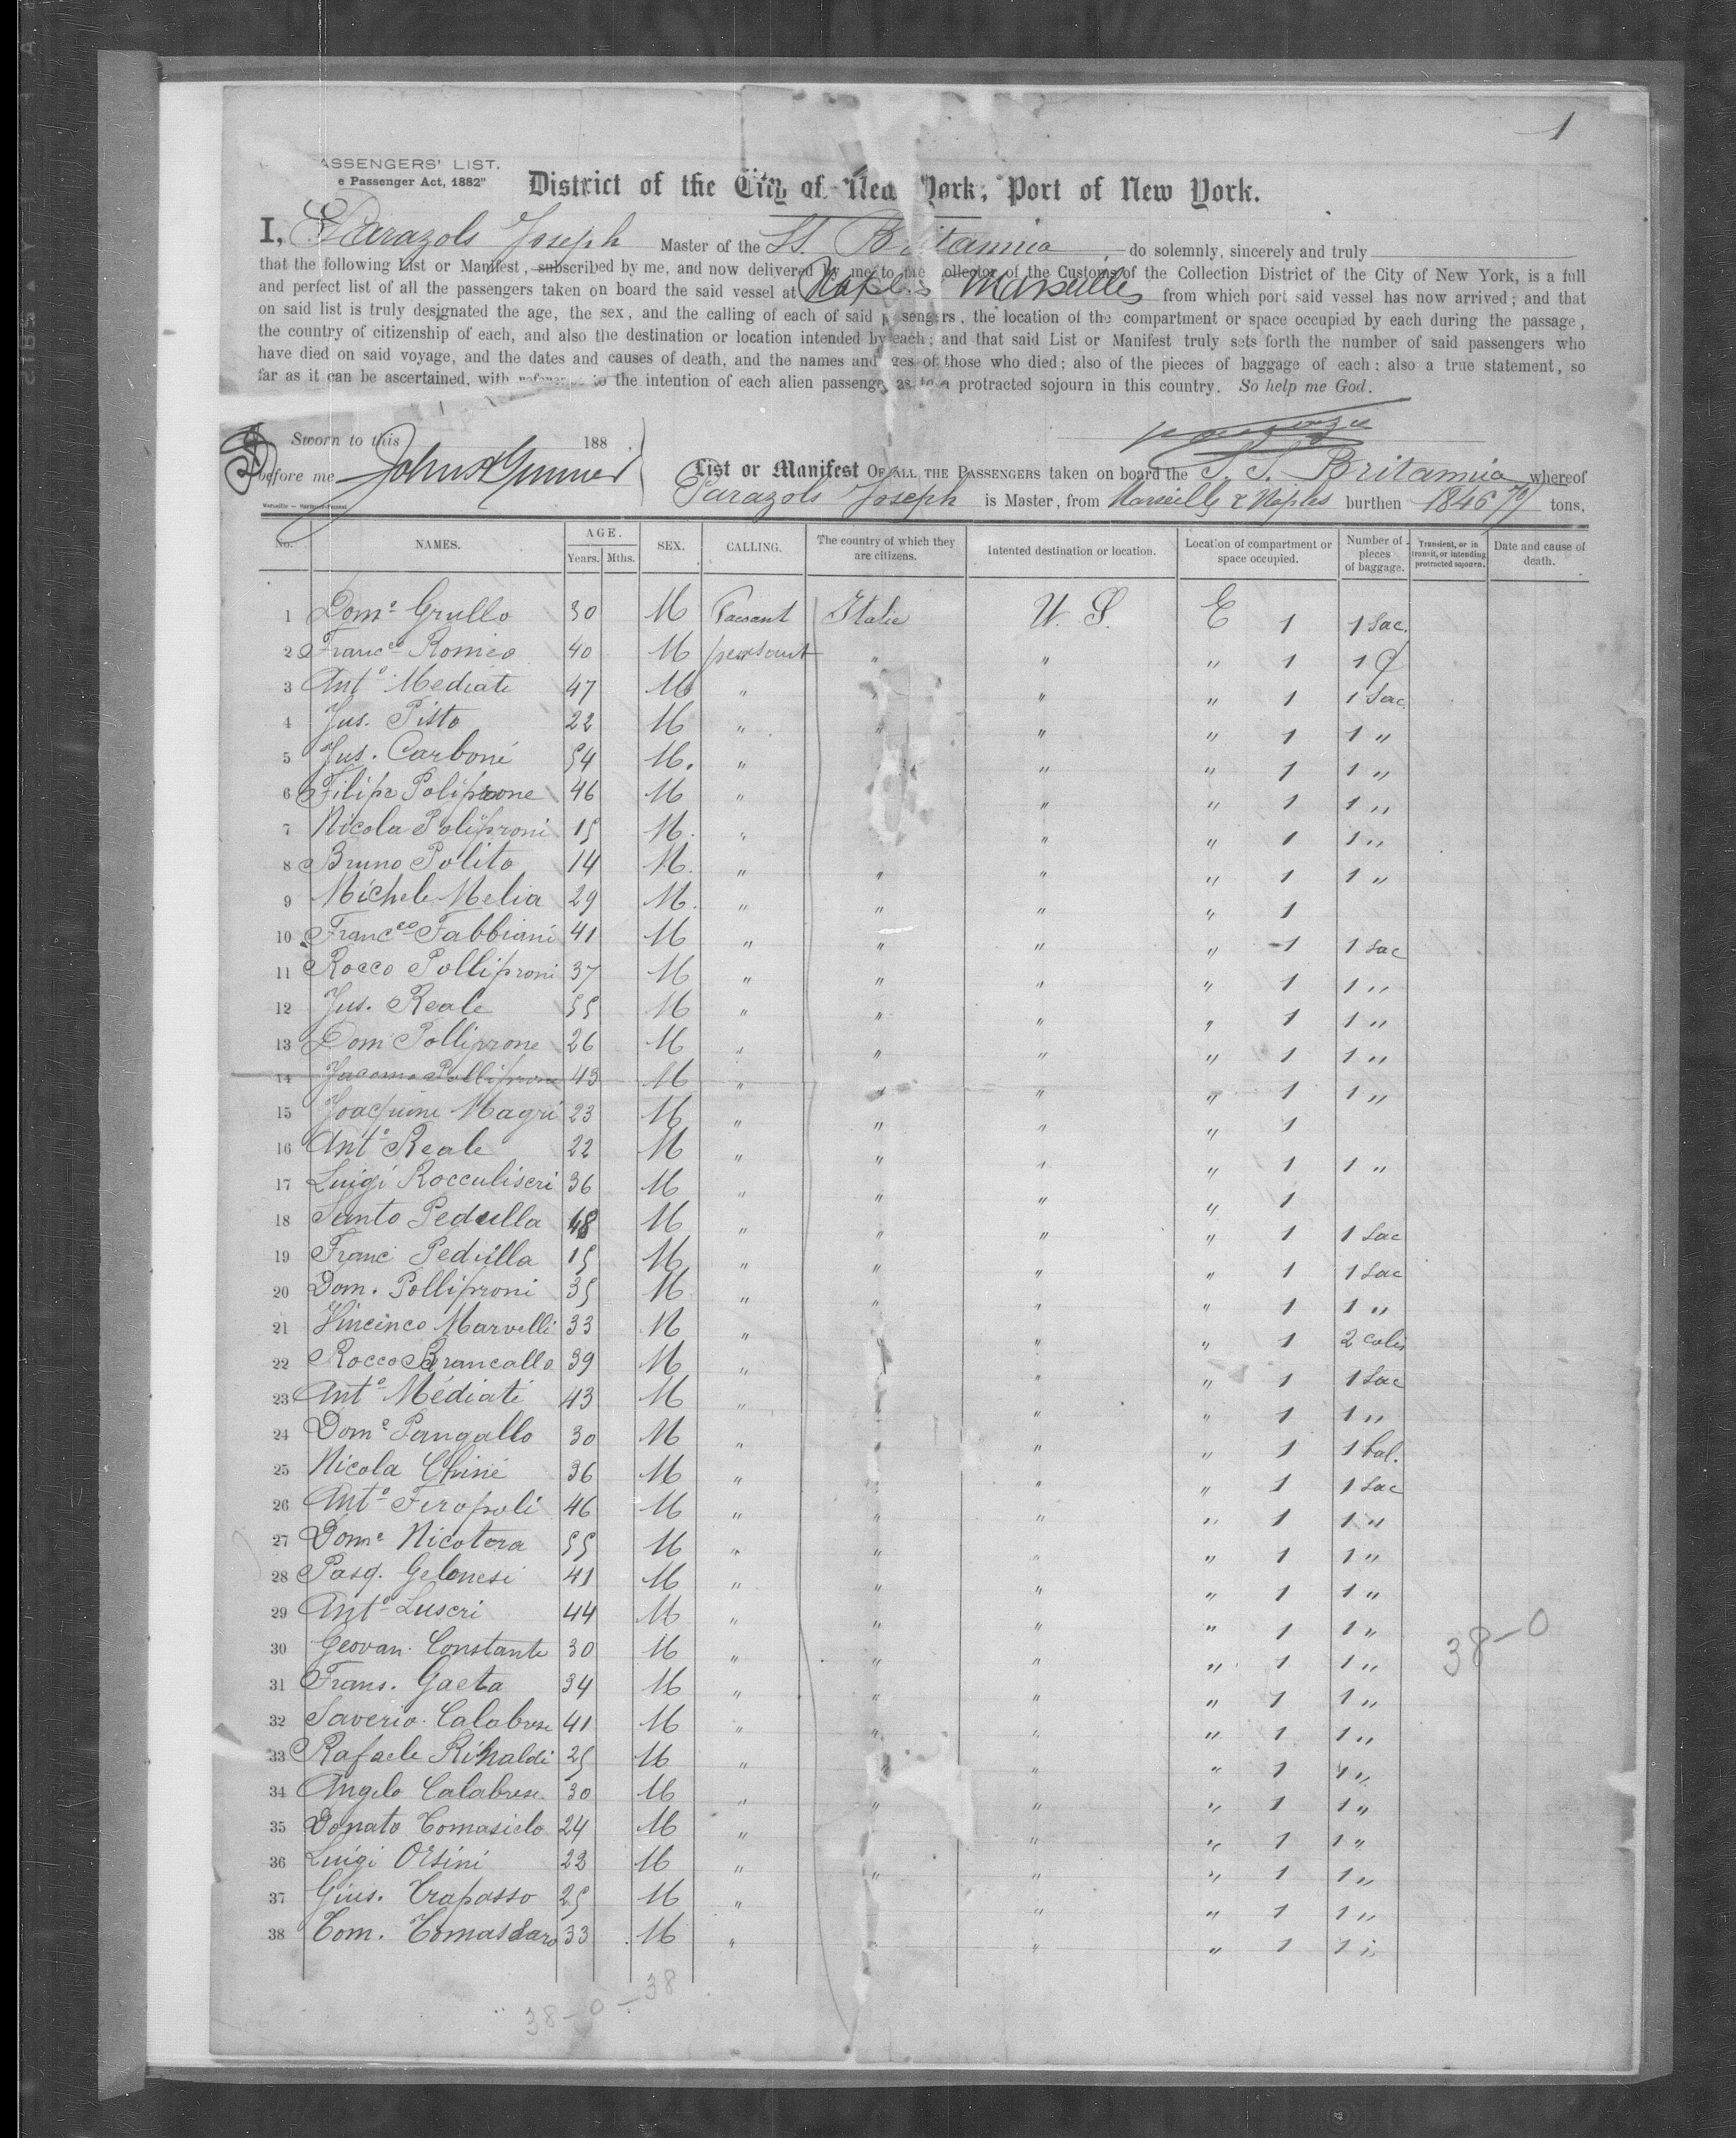 1
ASSENGERS' LIST.
e Passenger Act, 1882"
District of the City of New York, Port of New York.
I, Parazols Joseph Master of the SS. Britannia, do solemnly, sincerely and truly
that the following List or Manifest, subscribed by me, and now delivered by me to the Collector of the Customs of the Collection District of the City of New York, is a full
and perfect list of all the passengers taken on board the said vessel at Naples Marseilles from which port said vessel has now arrived; and that
on said list is truly designated the age, the sex, and the calling of each of said passengers, the location of the compartment or space occupied by each during the passage,
the country of citizenship of each, and also the destination or location intended by each; and that said List or Manifest truly sets forth the number of said passengers who
have died on said voyage, and the dates and causes of death, and the names and ages of those who died; also of the pieces of baggage of each: also a true statement, so
far as it can be ascertained, with reference to the intention of each alien passenger as to a protracted sojourn in this country. So help me God.
Sworn to this 188
before me
List or Manifest OF ALL THE PASSENGERS taken on board the S. S. Britannia whereof
Parazols Joseph is Master, from Marseille & Naples burthen 1846 tons.
No. NAMES. AGE. Years. Mths. SEX. CALLING. The country of which they are citizens. Intented destination or location. Location of compartment or space occupied. Number of pieces of baggage. Transient, or in transit, or intending protracted sojourn. Date and cause of death.
1 Domo Grullo 30 M Paesant Italie U. S. E 1 1 Sac.
2 Franceo Romeo 40 M peasant " " " 1 1
3 Anto Mediati 47 M " " " 1 1 Sac.
4 Jus. Pisto 22 M " " " " 1 1 "
5 Jus. Carboni 54 M. " " " 1 1 "
6 Filipe Poliprone 46 M " " " 1 1 "
7 Nicola Poliproni 15 M. " " " 1 1 "
8 Bruno Polito 14 M. " " " " 1 1 "
9 Michele Melia 29 M. " " " " 1
10 Franceo Fabbiani 41 M " " " " 1 1 Sac
11 Rocco Polliproni 37 M " " " " 1 1 "
12 Jus. Reale 55 M " " " " 1 1 "
13 Dom Polliprone 26 M " " " " 1 1 "
14 Jacomo Polliprone 43 M " " " " 1 1 "
15 Joaquine Magri 23 M " " " " 1
16 Anto Reale 22 M " " " " 1 1 "
17 Luigi Rocculiseri 36 M " " " " 1
18 Santo Pedulla 48 M " " " " 1 1 Sac
19 Franc Pedulla 15 M " " " " 1 1 Sac
20 Dom. Polliproni 35 M " " " " 1 1 "
21 Vincinco Marvelli 33 M " " " " 1 2 colis
22 Rocco Brancallo 39 M " " " " 1 1 Sac
23 Anto Médiati 43 M " " " " 1 1 "
24 Domo Pangallo 30 M " " " " 1 1 bal.
25 Nicola Chiné 36 M " " " " 1 1 Sac
26 Anto Firopoli 46 M " " " " 1 1 "
27 Dome Nicotera 55 M " " " " 1 1 "
28 Pasq. Gelonesi 41 M " " " " 1 1 "
29 Anto Luscri 44 M " " " " 1 1 "
30 Geovan. Constante 30 M " " " " 1 1 " 38-0
31 Frans. Gaeta 34 M " " " " 1 1 "
32 Saverio Calabrese 41 M " " " " 1 1 "
33 Rafaele Rinaldi 25 M " " " " 1 1 "
34 Angelo Calabrese 30 M " " " " 1 1 "
35 Donato Tomasielo 24 M " " " 1 1 "
36 Luigi Orsini 23 M " " " " 1 1 "
37 Gius. Trapasso 25 M " " " 1 1 "
38 Tom. Tomasdaro 33 M " " " " 1 1 "
38-0-38